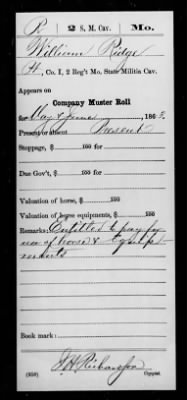 R 2 S. M. Cav. Mo.
William Ridge
Pt, Co. I, 2 Reg't Mo. State Militia Cav.
Appears on
Company Muster Roll
for May & June, 1863.
Present or absent Present
Stoppage, $ 100 for
Due Gov't, $ 100 for
Valuation of horse, $ 100
Valuation of horse equipments, $ 100
Remarks: Entitled to pay for
use of horse & Equip
ments
Book mark:
J H Richardson
(359) Copyist.